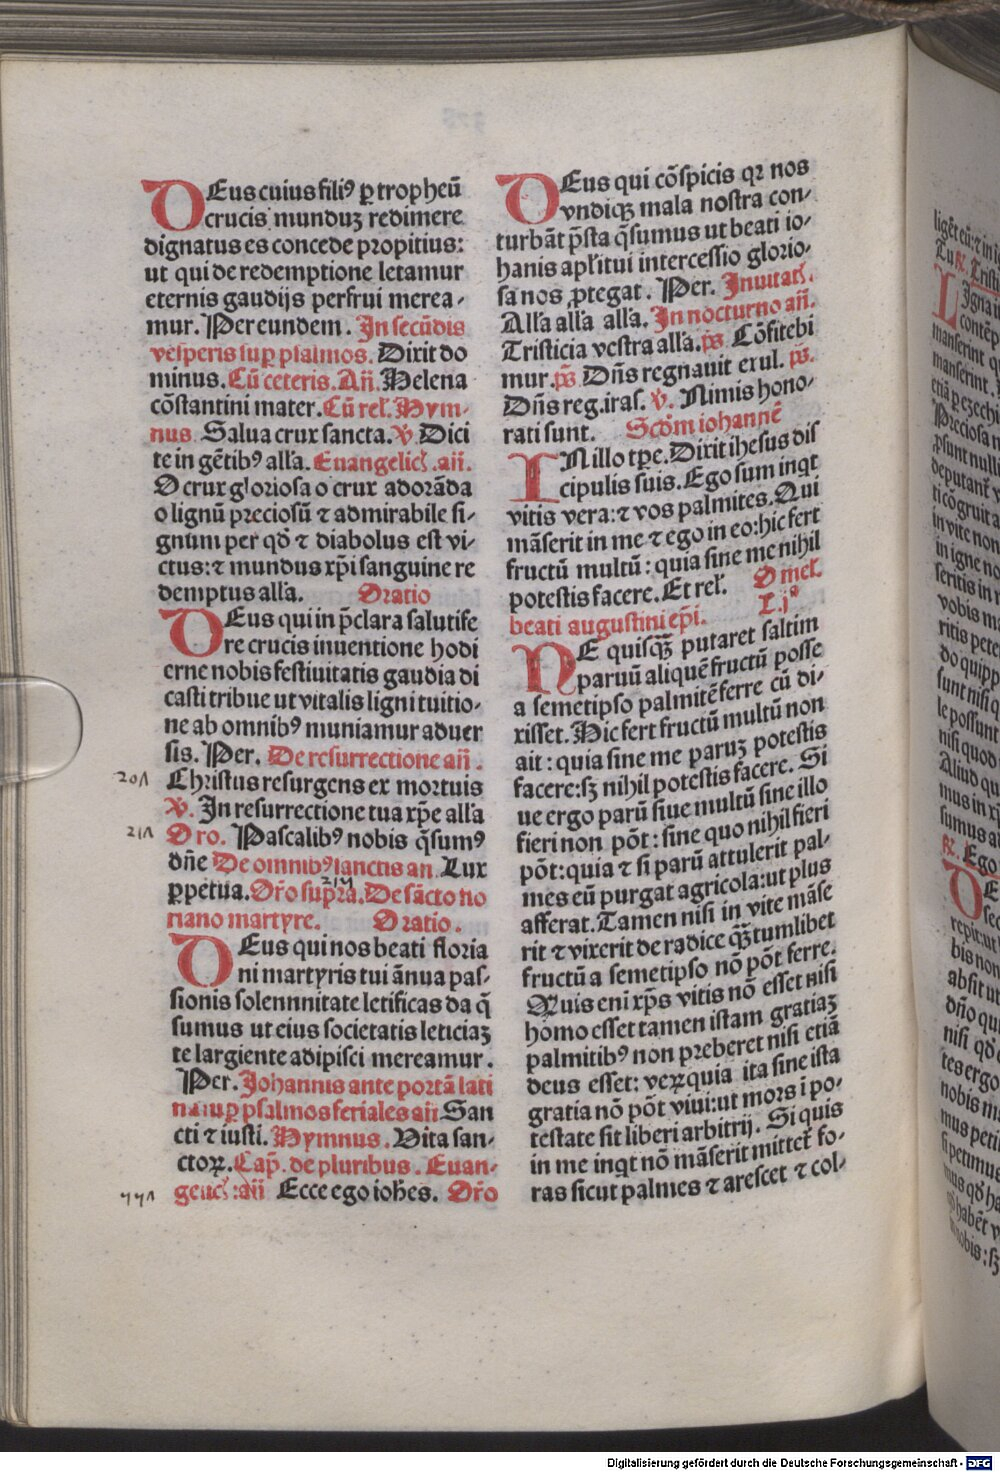 DEus cuius filiꝰ ꝑ tropheū
crucis munduʒ redimere
dignatus es concede propitius:
ut qui de redemptione letamur
eternis gaudijs perfrui merea-
mur. Per eundem. In secūdis
vesperis suꝑ psalmos. Dixit do
minus. Cū ceteris. Añ. Helena
cōstantini mater. Cū rel'. Hym-
nus. Salua crux sancta. ꝟ. Dici
te in gētibꝰ all'a. Euangelic̄. añ.
O crux gloriosa o crux adorāda
o lignū preciosū ⁊ admirabile si-
gnum per qđ ⁊ diabolus est vi-
ctus: ⁊ mundus xp̄i sanguine re
demptus all'a. Oratio
DEus qui in p̄clara salutife
re crucis inuentione hodi
erne nobis festiuitatis gaudia di
casti tribue ut vitalis ligni tuitio-
ne ab omnibꝰ muniamur aduer
sis. Per. De resurrectione añ.
Christus resurgens ex mortuis
ꝟ. In resurrectione tua xp̄e all'a
Oro. Pascalibꝰ nobis q̄sumꝰ
dñe De omnibꝰ sanctis an. Lux
ꝑpetua. Or̄o supra. De sācto flo
riano martyre. Oratio.
DEus qui nos beati floria
ni martyris tui ānua pas-
sionis solennnitate letificas da q̄
sumus ut eius societatis leticiaʒ
te largiente adipisci mereamur.
Per. Johannis ante portā lati
nā suꝑ psalmos feriales añ San
cti ⁊ iusti. Hymnus. Vita san-
ctoꝝ. Cap̄. de pluribus. Euan-
gelic̄: añ Ecce ego ioh̄es. Or̄o
DEus qui cōspicis qꝛ nos
vndiqʒ mala nostra con-
turbāt p̄sta q̄sumus ut beati io-
hanis apl'i tui intercessio glorio-
sa nos ꝓtegat. Per. Inuitat̄.
All'a all'a all'a. In nocturno añ.
Tristicia vestra all'a. ps̄ Cōfitebi
mur. ps̄ Dn̄s regnauit exul. ps̄.
Dn̄s reg. iras. ꝟ. Nimis hono-
rati sunt. Scđm iohannē
IN illo tꝑe. Dixit ihesus dis
cipulis suis. Ego sum inqt
vitis vera: ⁊ vos palmites. Qui
māserit in me ⁊ ego in eo: hic fert
fructū multū: quia sine me nihil
potestis facere. Et rel'. Omel'.
beati augustini ep̄i. L. jᵃ
NE quisqʒ̄ putaret saltim
paruū aliquē fructū posse
a semetipso palmitē ferre cū di-
xisset. Hic fert fructū multū non
ait: quia sine me paruʒ potestis
facere: sʒ nihil potestis facere. Si
ue ergo parū siue multū sine illo
fieri non pōt: sine quo nihil fieri
pōt: quia ⁊ si parū attulerit pal-
mes eū purgat agricola: ut plus
afferat. Tamen nisi in vite māse
rit ⁊ vixerit de radice qʒ̄tumlibet
fructū a semetipso nō pōt ferre.
Quis eni xp̄s vitis nō esset nisi
homo esset tamen istam gratiaʒ
palmitibꝰ non preberet nisi etiā
deus esset: veꝝ quia ita sine ista
gratia nō pōt viui: ut mors ī po-
testate sit liberi arbitrij. Si quis
in me inqt nō māserit mittet̄ fo-
ras sicut palmes ⁊ arescet ⁊ col-
Digitalisierung gefördert durch die Deutsche Forschungsgemeinschaft - DFG